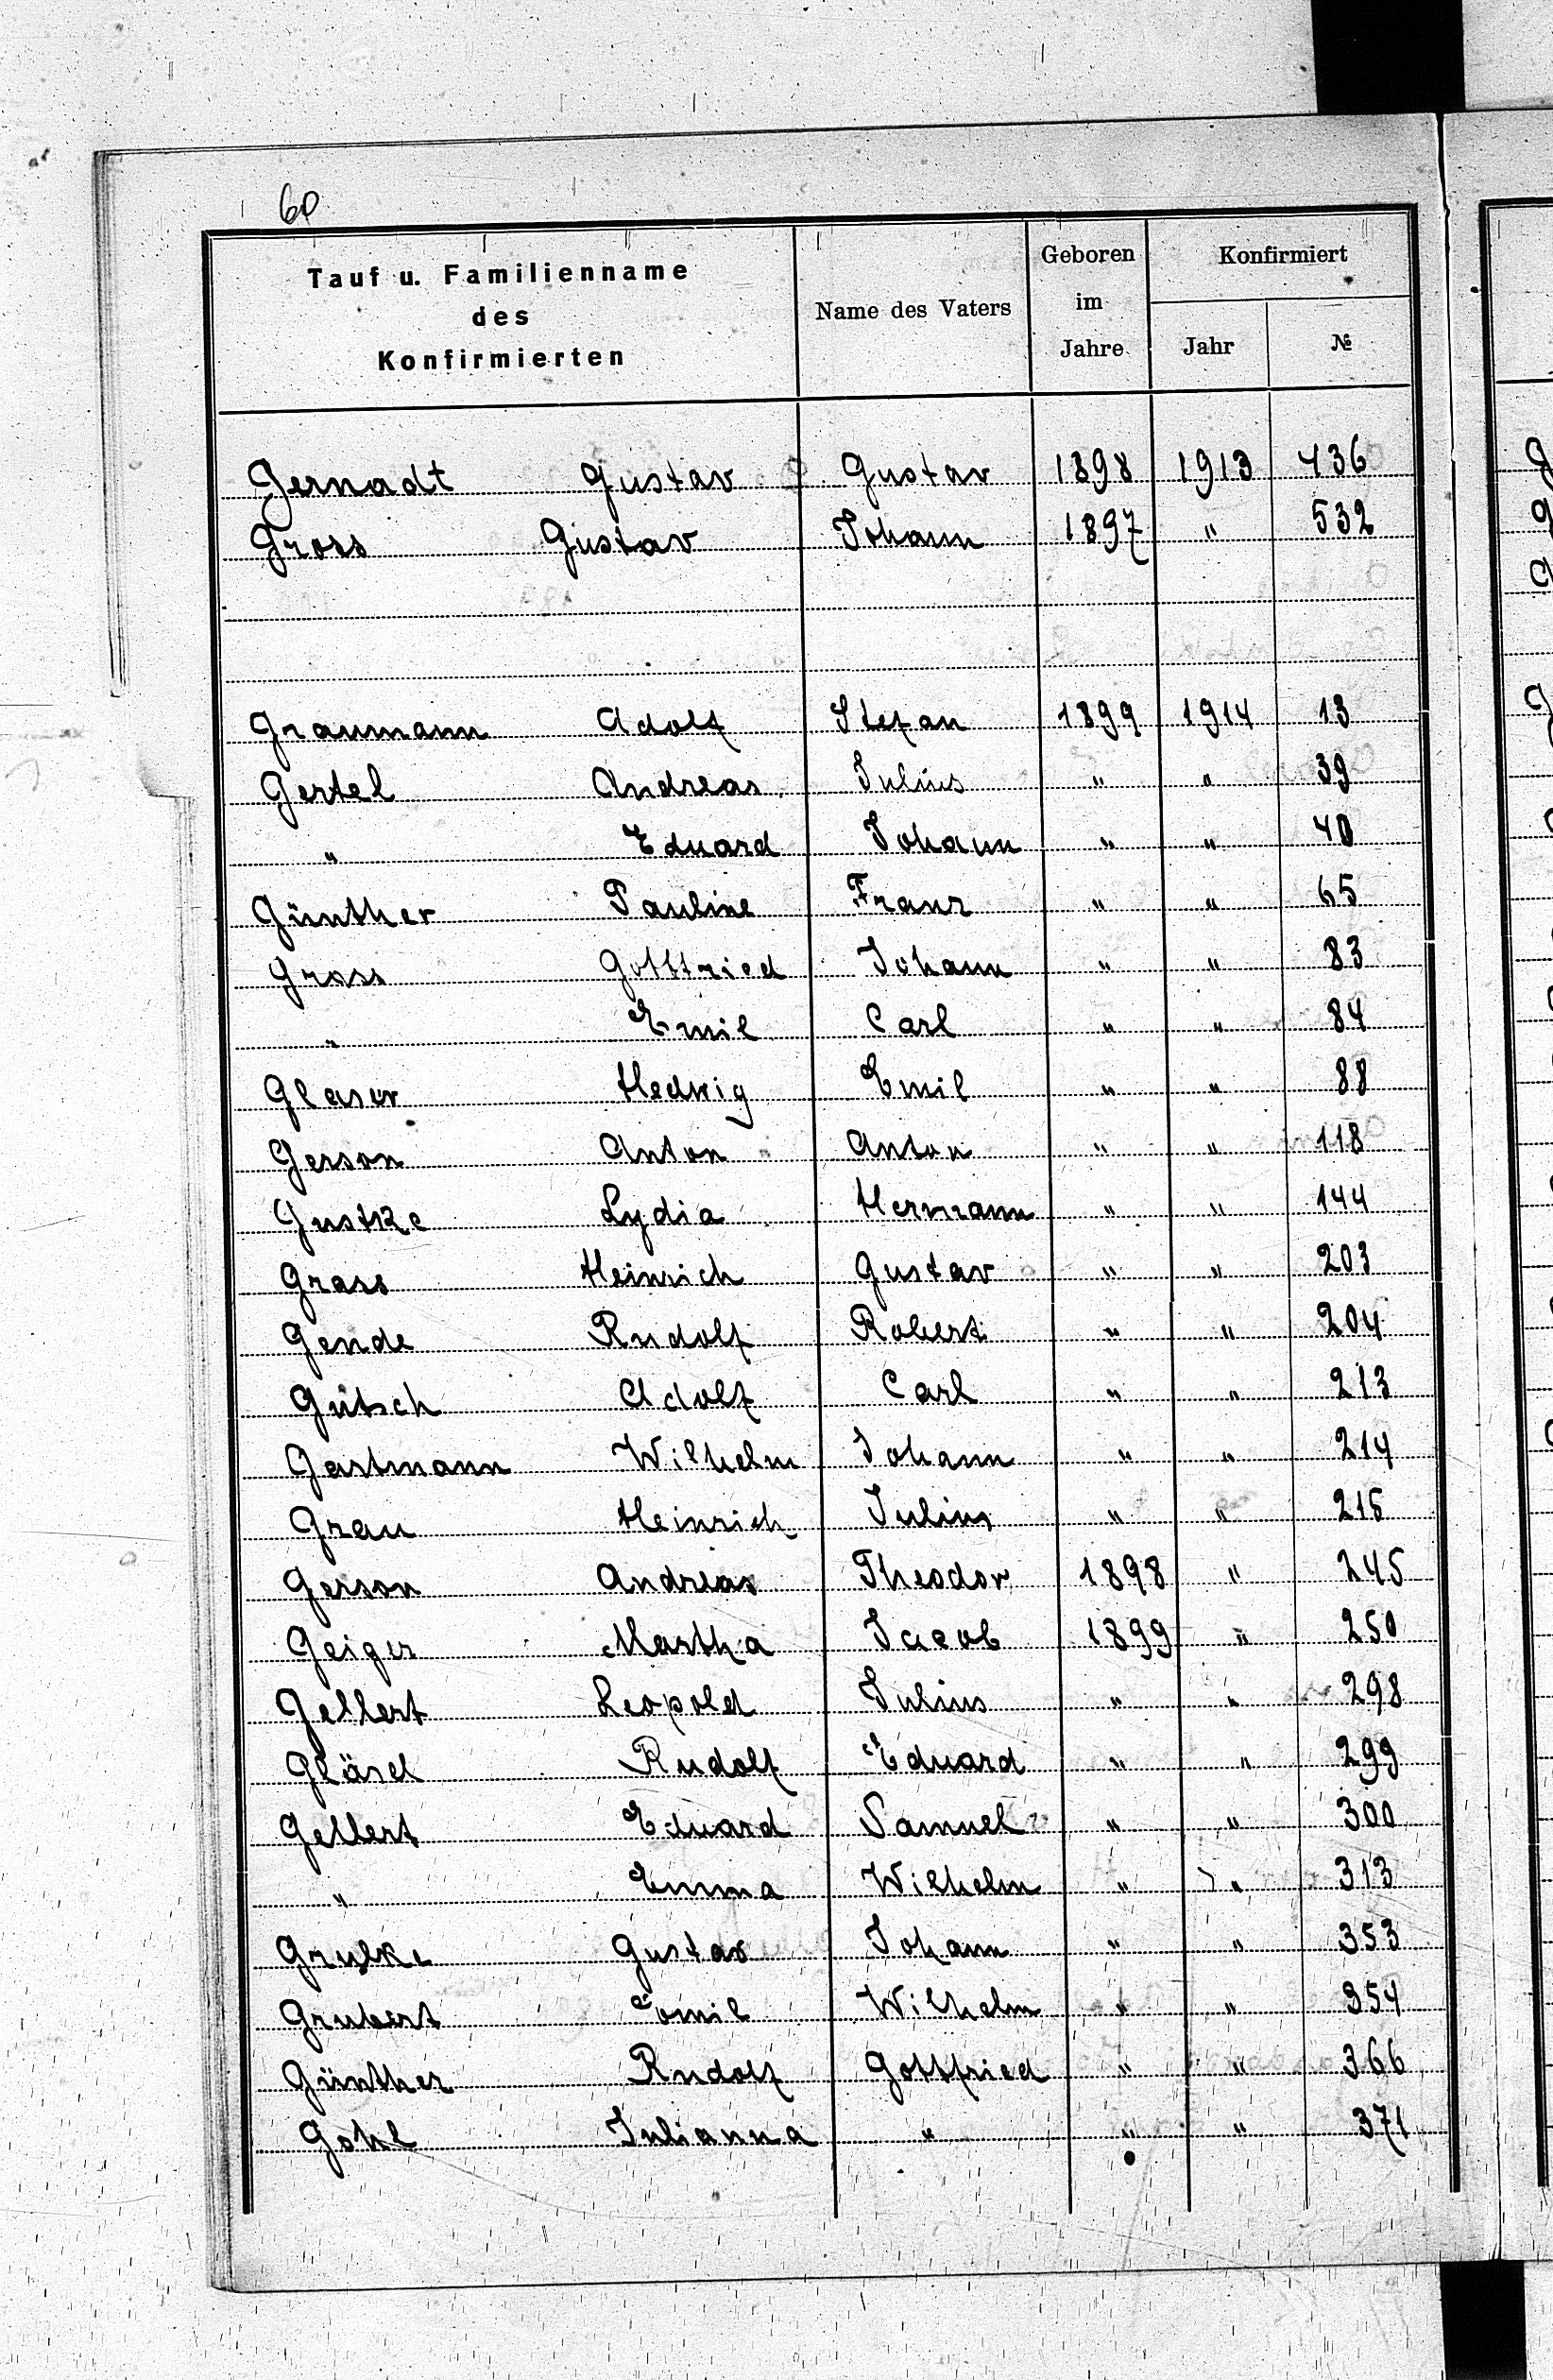 60
Tauf u. Familienname des Konfirmierten | Name des Vaters | Geboren im Jahre | Konfirmiert Jahr | №
Gernadt Gustav Gustav 1898 1913 436
Gross Gustav Johann 1897 " 532
Graumann Adolf Stefan 1899 1914 13
Gertel Andreas Julius " " 39
" Eduard Johann " " 40
Günther Pauline Franz " " 65
Gross Gottfried Johann " " 83
" Emil Carl " " 84
Glaser Hedwig Emil " " 88
Gerson Anton Anton " " 118
Gustke Lydia Hermann " " 144
Grass Heinrich Gustav " " 203
Gende Rudolf Robert " " 204
Gütsch Adolf Carl " " 213
Gastmann Wilhelm Johann " " 214
Grau Heinrich Julius " " 215
Gerson Andreas Theodor 1898 " 245
Geiger Martha Jacob 1899 " 250
Gellert Leopold Julius " " 298
Gläsel Rudolf Eduard " " 299
Gellert Eduard Samuel " " 300
" Emma Wilhelm " " 313
Grulke Gustav Johann " " 353
Grubert Emil Wilhelm " " 354
Günther Rudolf Gottfried " " 366
Gohl Julianna " " " 371